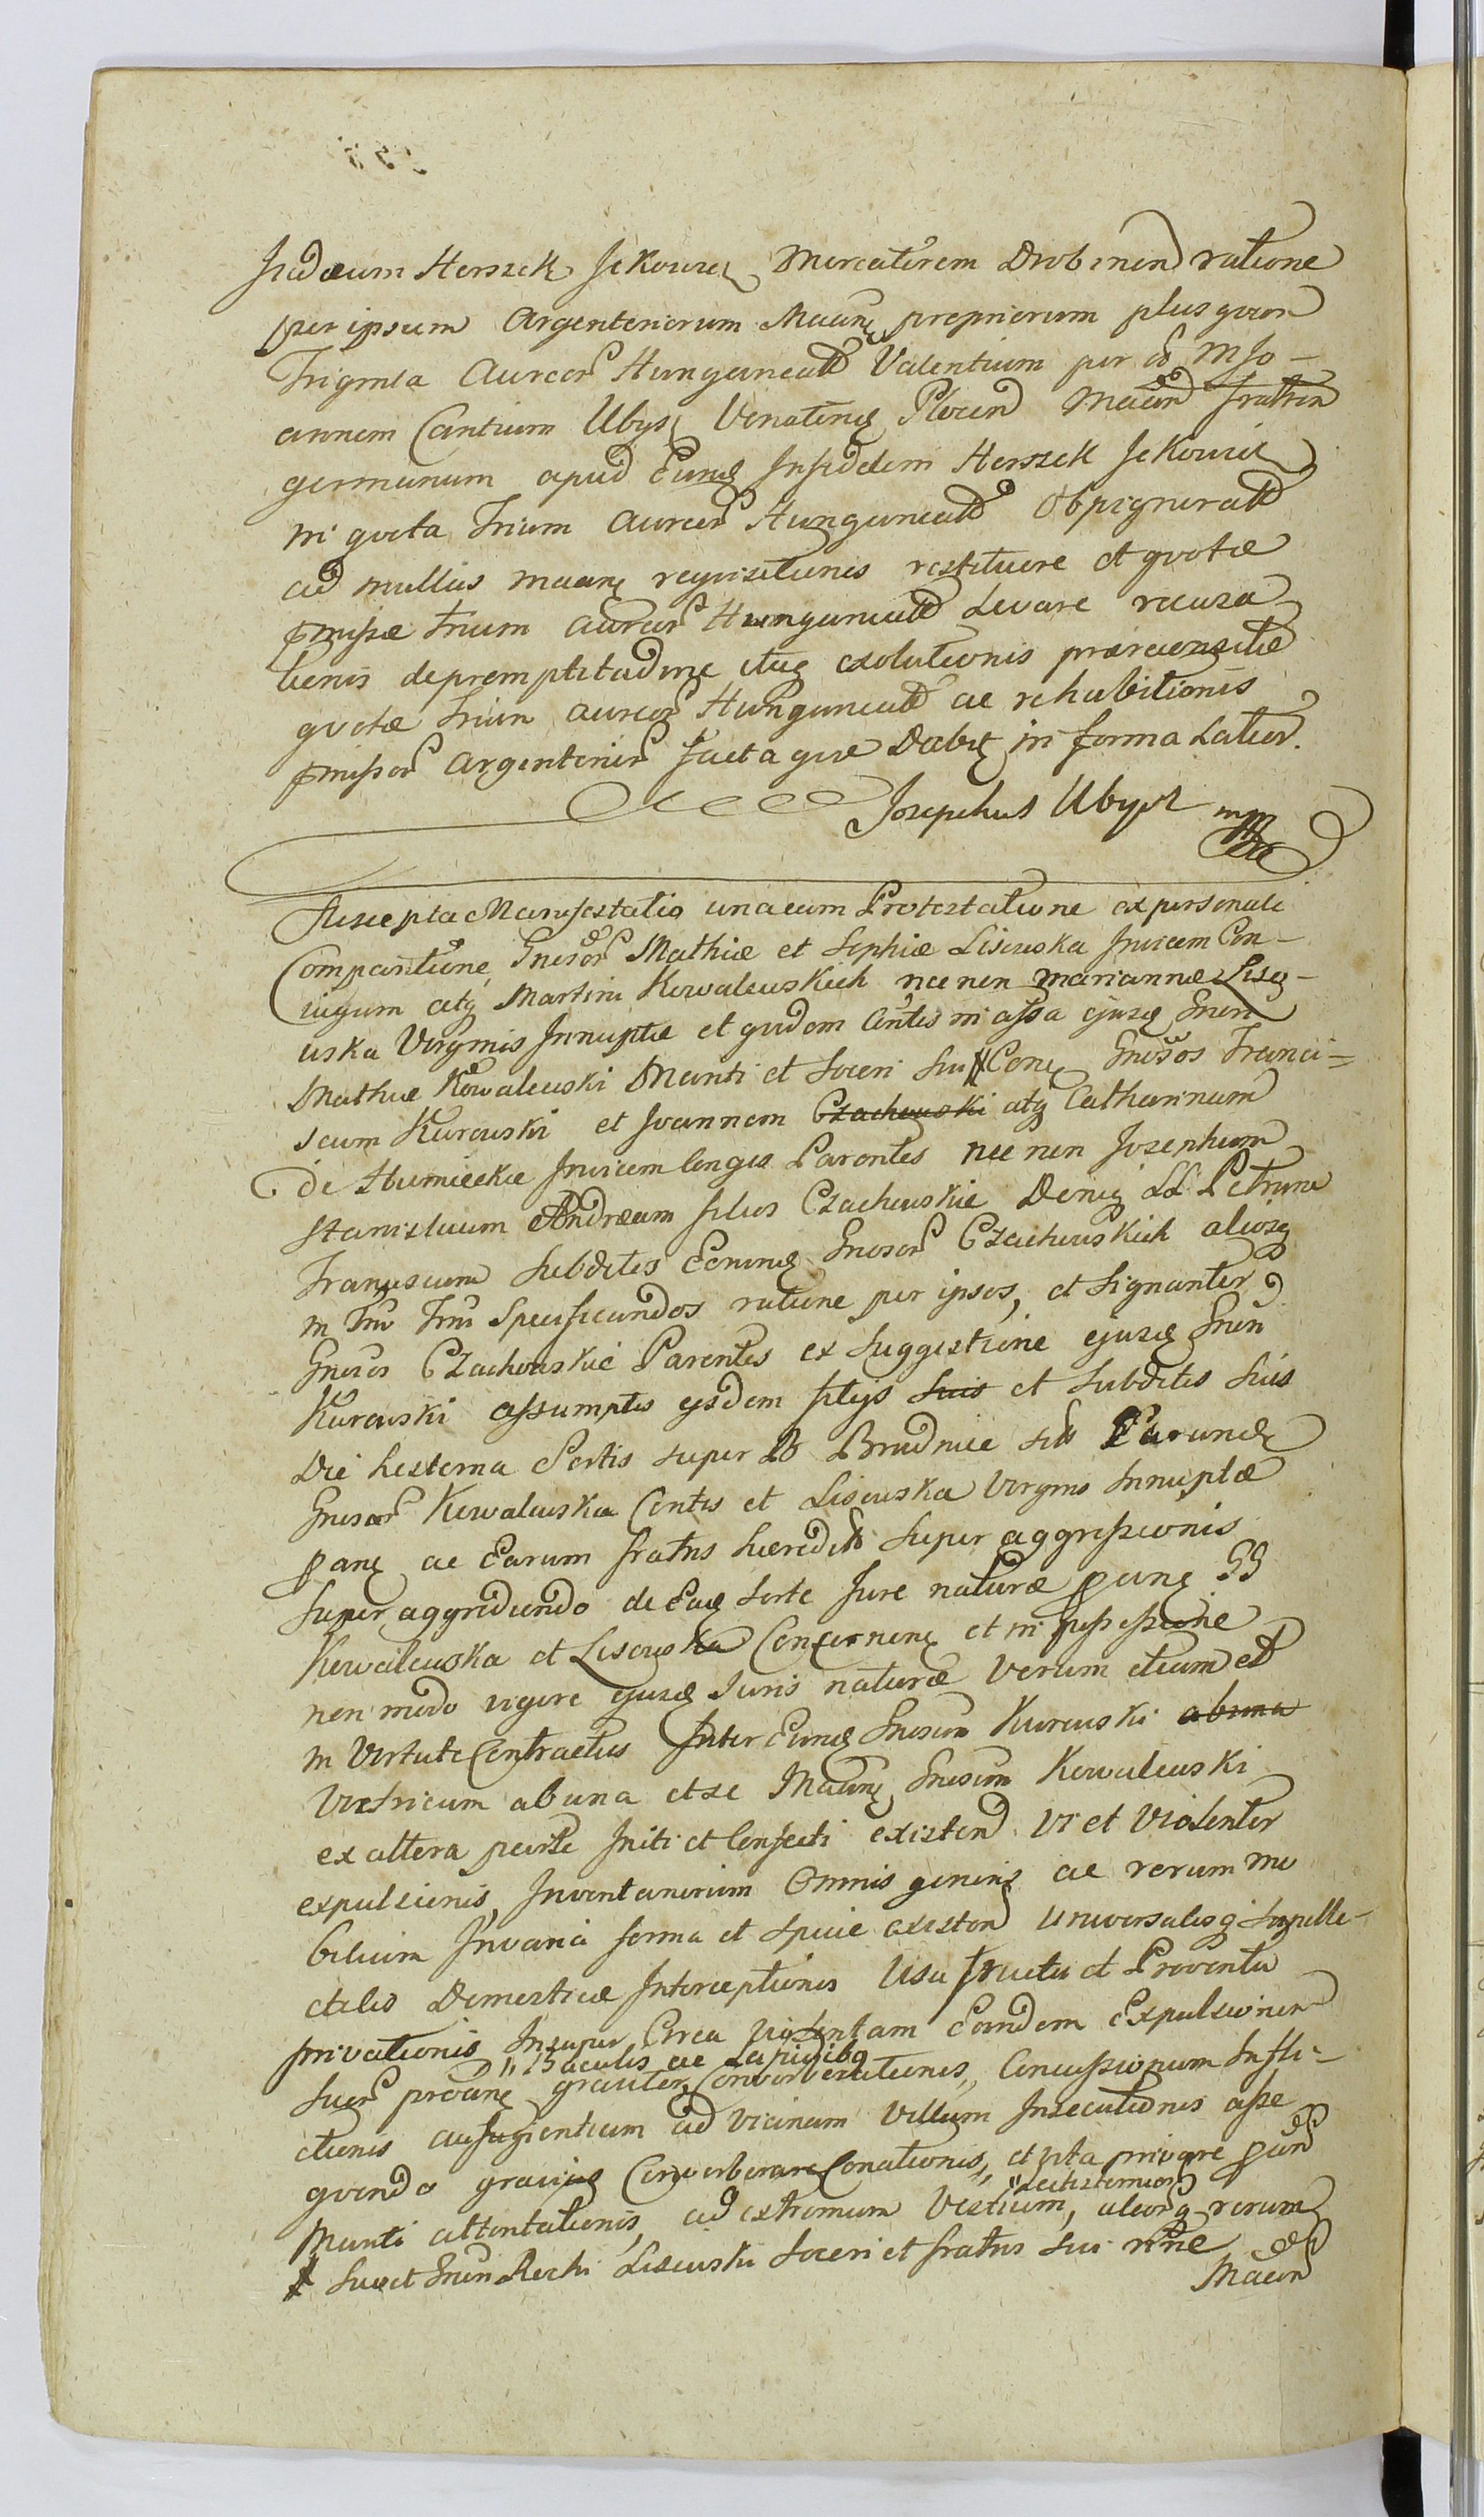 Judæum Herszek Jekowicz Mercatorem Drobinen ratione
per ipsum Argenteriorum Maane propriorum plus qvam
Triginta Aureor Hungaricall Valentium per M Jo-
annem Cantium Ubysz Venatorie Plocen Maan fratrem
germanum apud Eune Infidelem Herszek Jekowicz
in qvota Trium aureor Hungaricall Obpignorall
ad nullius maane reqvisitionis restituere et qvotæ
pmissæ trium aureor Hungaricall Levare recusa
tionis depromptitudine itaq exolutionis præreensitæ
qvotæ trium aureor Hungaricall ac rehabitionis
pmissor Argenterior facta qvæ Dabit in forma Latior.
Josephus Ubysz mpp
Suscepta Manifestatio unacum Protestatione ex personali
Comparitione Gnesor Mathiæ et Sophiæ Lisewska Invicem Con-
iugum atq Martini Kowalewskich nec non Mariannæ Lisew-
uska Virginis Innuptæ et qvidem Contis in assa ejusq Gnen
Mathiæ Kowalewski Mariti et Soceri sui Con Gnesos Franci-
scum Kurowski et Joannem Czachowski atq Catharinam
de Humieckie Invicem Conges Parentes nec non Josephum
Stanislaum Andream filios Czachowskie Deniq LL Petrum
Franciscum Subditos Eorunq Gnesor Czachowskich aliosq
in Tm Tmi Specificandos ratione per ipsos, et Signanter
Gnesos Czachowskie Parentes ex Suggestione ejusq Gnen
Kurowski assumptis ijsdem filijs suis et Subditis Suis
Die hesterna Sortis super B Brudnice sit Earunq
Gnesar Kowalewska Contis et Lisewska Virginis Innuptæ
pane ac Earum fratris hæredit Super aggressionis
super aggrediendo de Eaq Sorte Jure naturæ pane GG
Kowalewska et Lisewska Concernen et in possessione
non modo vigore ejusq Juris naturæ verum etiam et
in Virtute Contractus Inter Eunq Gnesum Kurowski abuna
Vitricum ab una et se Maane Gnesum Kowalewski
ex altera parte Initi et Confecti existen Vi et Violenter
expulsionis, Inventariorum Omnis generis ac rerum mo
bilium Invaria forma et Specie existen universalisq Supelle-
ctilis Domesticæ Interceptionis Usu fructu et Proventu
privationis Insuper Circa Violentam Eandem Expulsionem
" Baculis ac Lapidibq
suor proane graviter, Converberationis, Concussionum Infli-
ctionis aufugientium ad vicinam Villam Insecutionis asse
qvendo graviq Converberare Conationis, et vita privare pan
" Lectisternior
Mariti attentationis, ad extremum Vestium, aliorq rerum
Suæ et Gnen Rochi Lisewski Soceri et fratris sui nne
Maan